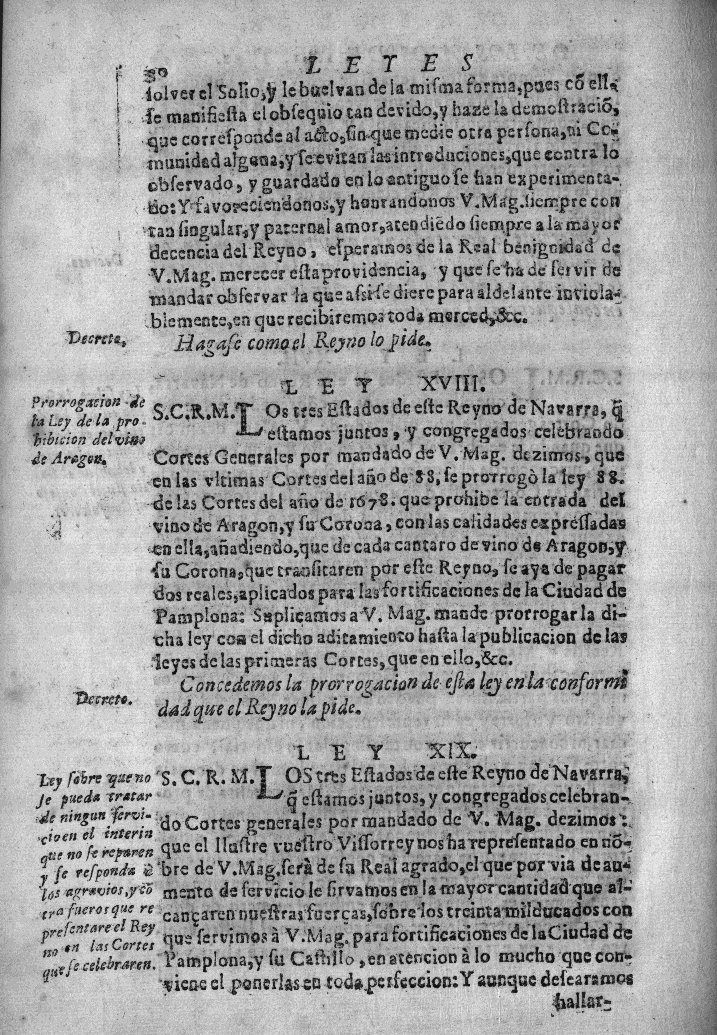 80
LEYES
solver el Solio, y le buelvan de la misma forma, pues cõ ella
se manifiesta el obsequio tan devido, y haze la demostraciõ,
que corresponde al acto, sin que medie otra persona, ni Co-
munidad algũna, y se evitan las introduciones, que contra lo
observado, y guardado en lo antiguo se han experimenta-
do: Y favoreciendonos, y honrandonos V. Mag. siempre con
tan singular, y paternal amor, atendiẽdo siempre a la mayor
decencia del Reyno, esperamos de la Real benignidad de
V. Mag. merecer esta providencia, y que se ha de servir de
mandar observar la que assi se diere para aldelante inviola-
blemente, en que recibiremos toda merced, &c.
Decreto,
Hagase como el Reyno lo pide.
LEY XVIII.
Prorrogacion de
la Ley de la pro-
hibicion del vino
de Aragon,
S.C.R.M. LOs tres Estados de este Reyno de Navarra, q̃
estamos juntos, y congregados celebrando
Cortes Generales por mandado de V. Mag. dezimos, que
en las vltimas Cortes del año de 88, se prorrogò la ley 88.
de las Cortes del año de 1678. que prohibe la entrada del
vino de Aragon, y su Corona, con las calidades expressadas
en ella, añadiendo, que de cada cantaro de vino de Aragon, y
su Corona, que transitaren por este Reyno, se aya de pagar
dos reales, aplicados para las fortificaciones de la Ciudad de
Pamplona: Suplicamos a V. Mag. mande prorrogar la di-
cha ley con el dicho aditamiento hasta la publicacion de las
leyes de las primeras Cortes, que en ello, &c.
Decreto.
Concedemos la prorrogacion de esta ley en la conformi
dad que el Reyno la pide.
LEY XIX.
Ley sobre que no
se pueda tratar
de ningun servi-
cio en el interin
que no se reparen
y se responda à
los agravios, y cõ
tra fueros que re
presentare el Rey
no en las Cortes
que se celebraren.
S. C. R. M. LOS tres Estados de este Reyno de Navarra,
q̃ estamos juntos, y congregados celebran-
do Cortes generales por mandado de V. Mag. dezimos:
que el Ilustre vuestro Vissorrey nos ha representado en nõ-
bre de V. Mag. serà de su Real agrado, el que por via de au-
mento de servicio le sirvamos en la mayor cantidad que al-
cançaren nuestras fuerças, sobre los treinta mil ducados con
que servimos à V. Mag. para fortificaciones de la Ciudad de
Pamplona, y su Castillo, en atencion à lo mucho que con-
viene el ponerlas en toda perfeccion: Y aunque desearamos
hallar-